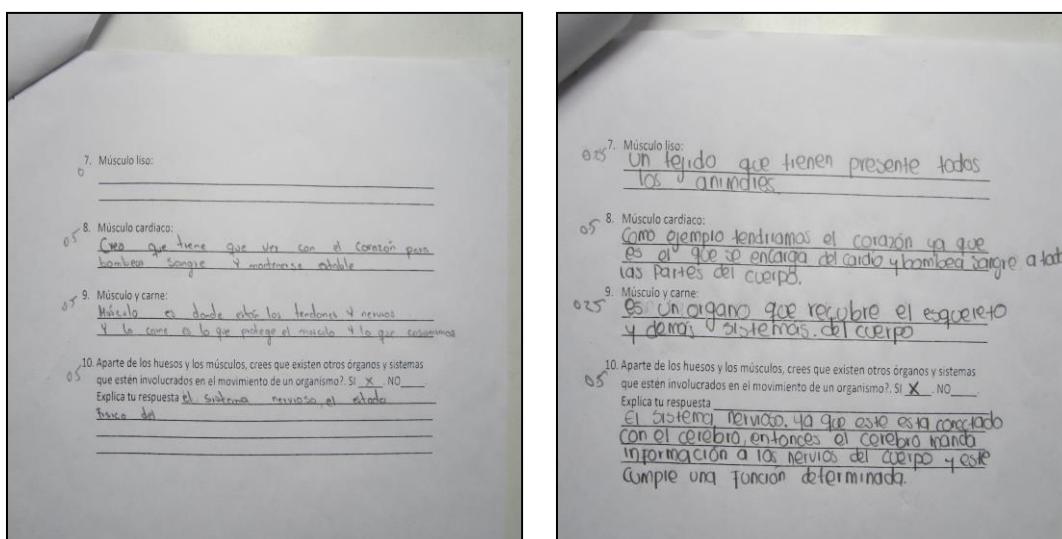 7. Músculo liso:
0
8. Músculo cardiaco:
05
Creo que tiene que ver con el corazón para
bombear sangre y mantenerse estable
9. Músculo y carne:
05
Músculo es donde están los tendones y nervios
y la carne es lo que protege el musculo y lo que consumimos
10. Aparte de los huesos y los músculos, crees que existen otros órganos y sistemas
05
que estén involucrados en el movimiento de un organismo?. SI X . NO
Explica tu respuesta el sistema nervioso, el estado
fisico del
7. Músculo liso:
025
un tejido que tienen presente todos
los animales.
8. Músculo cardiaco:
05
Como ejemplo tendriamos el corazón ya que
es el que se encarga del cardio y bombea sangre a tod
las partes del cuerpo.
9. Músculo y carne:
025
es un organo que recubre el esquereto
y demás sistemas del cuerpo
10. Aparte de los huesos y los músculos, crees que existen otros órganos y sistemas
05
que estén involucrados en el movimiento de un organismo?. SI X . NO
Explica tu respuesta
El sistema nervioso, ya que este esta conectado
con el cerebro, entonces el cerebro manda
información a los nervios del cuerpo y este
cumple una función determinada.